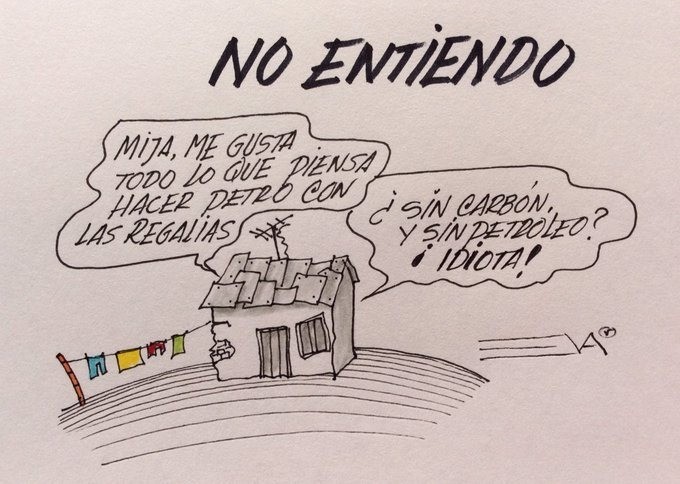 NO ENTIENDO
MIJA, ME GUSTA
TODO LO QUE PIENSA
HACER PETRO CON
LAS REGALIAS
¿SIN CARBÓN,
Y SIN PETRÓLEO?
¡IDIOTA!